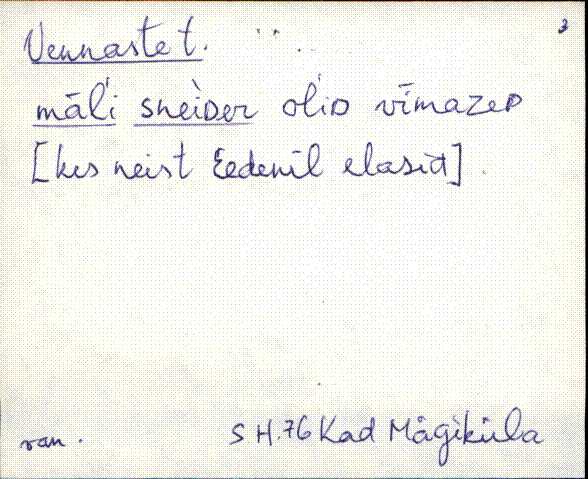 3
Vennaste t.
māl'i sneìDer olìD vīmazeD
[kes neist Eedenil elasid]
ran.
SH.76 Kad Mägiküla